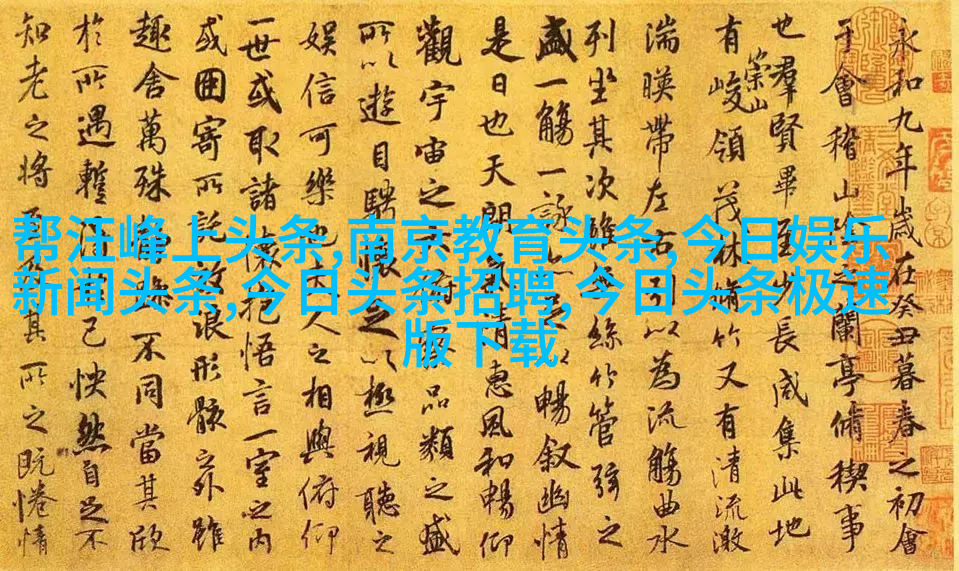 帮汪峰上头条,南京教育头条,今日娱乐
新闻头条,今日头条招聘,今日头条极速
版下载
永和九年歲在癸丑暮春之初會
于會稽山陰之蘭亭脩稧事
也羣賢畢至少長咸集此地
有崇山峻領茂林脩竹又有清流激
湍暎帶左右引以為流觴曲水
列坐其次雖無絲竹管弦之
盛一觴一詠亦足以暢叙幽情
是日也天朗氣清惠風和暢仰
觀宇宙之大俯察品類之盛
所以遊目騁懷足以極視聽之
娛信可樂也夫人之相與俯仰
一世或取諸懷抱悟言一室之內
或因寄所託放浪形骸之外雖
趣舍萬殊不同當其欣
於所遇暫得於己怏然自足不
知老之將至及其所之既惓情